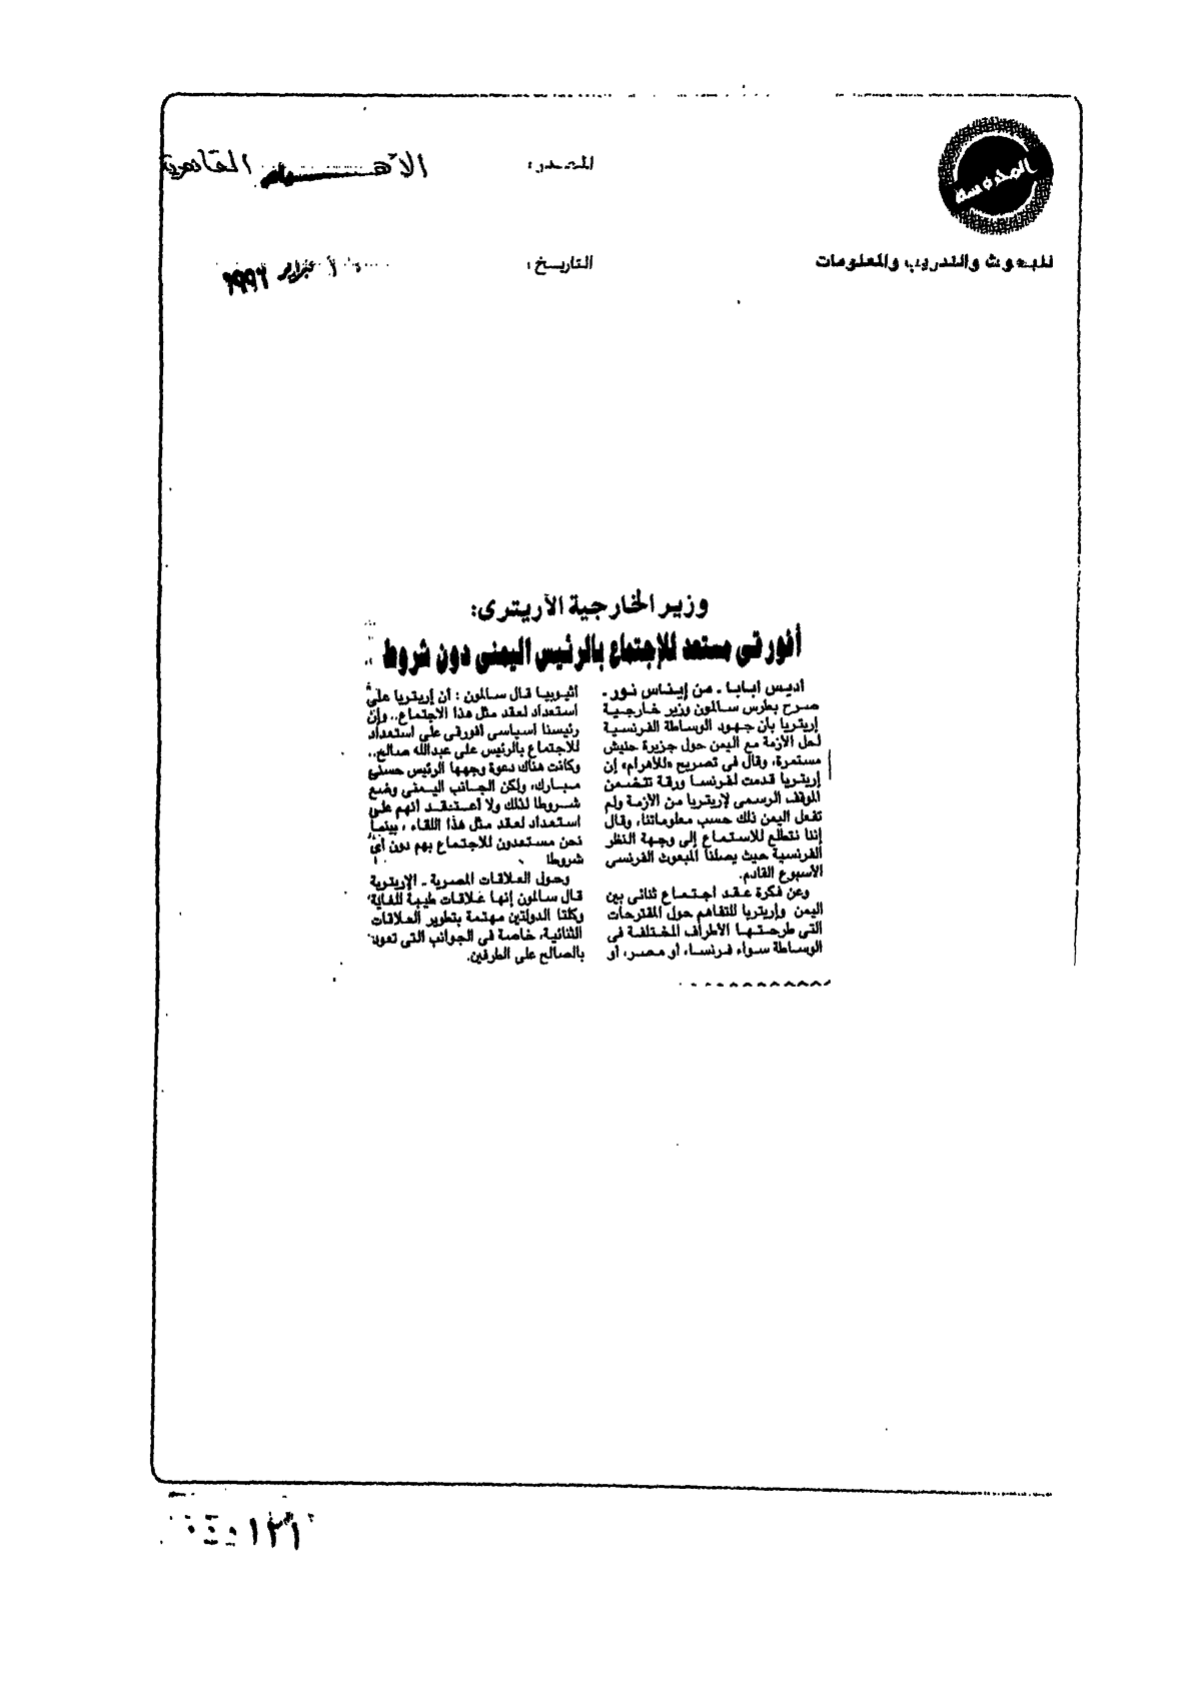 المحروسة
للبحوث والتدريب والمعلومات
المصدر: الأهـــرام القاهرية
التاريخ: فبراير ١٩٩٦
وزير الخارجية الاريترى:
أفورقى مستعد للإجتماع بالرئيس اليمنى دون شروط
أديس أبابا ـ من إيناس نور ـ
صرح بطرس سالمون وزير خارجية
إريتريا بأن جهود الوساطة الفرنسية
لحل الأزمة مع اليمن حول جزيرة حنيش
مستمرة، وقال فى تصريح «للأهرام» إن
إريتريا قدمت لفرنسا ورقة تتضمن
الموقف الرسمى لإريتريا من الأزمة ولم
تفعل اليمن ذلك حسب معلوماتنا، وقال
إننا نتطلع للاستماع إلى وجهة النظر
الفرنسية حيث يصلنا المبعوث الفرنسى
الأسبوع القادم.
وعن فكرة عقد اجتماع ثنائى بين
اليمن وإريتريا للتفاهم حول المقترحات
التى طرحتها الأطراف المختلفة فى
الوساطة سواء فرنسا، أو مصر، أو
أثيوبيا قال سالمون : أن إريتريا على
استعداد لعقد مثل هذا الاجتماع.. وإن
رئيسنا أسياسى أفورقى على استعداد
للاجتماع بالرئيس على عبدالله صالح..
وكانت هناك دعوة وجهها الرئيس حسنى
مبارك، ولكن الجانب اليمنى وضع
شروطا لذلك ولا أعتقد أنهم على
استعداد لعقد مثل هذا اللقاء ، بينما
نحن مستعدون للاجتماع بهم دون أى
شروط!
وحول العلاقات المصرية ـ الإريترية
قال سالمون إنها علاقات طيبة للغاية
وكلتا الدولتين مهتمة بتطوير العلاقات
الثنائية، خاصة فى الجوانب التى تعود
بالصالح على الطرفين.